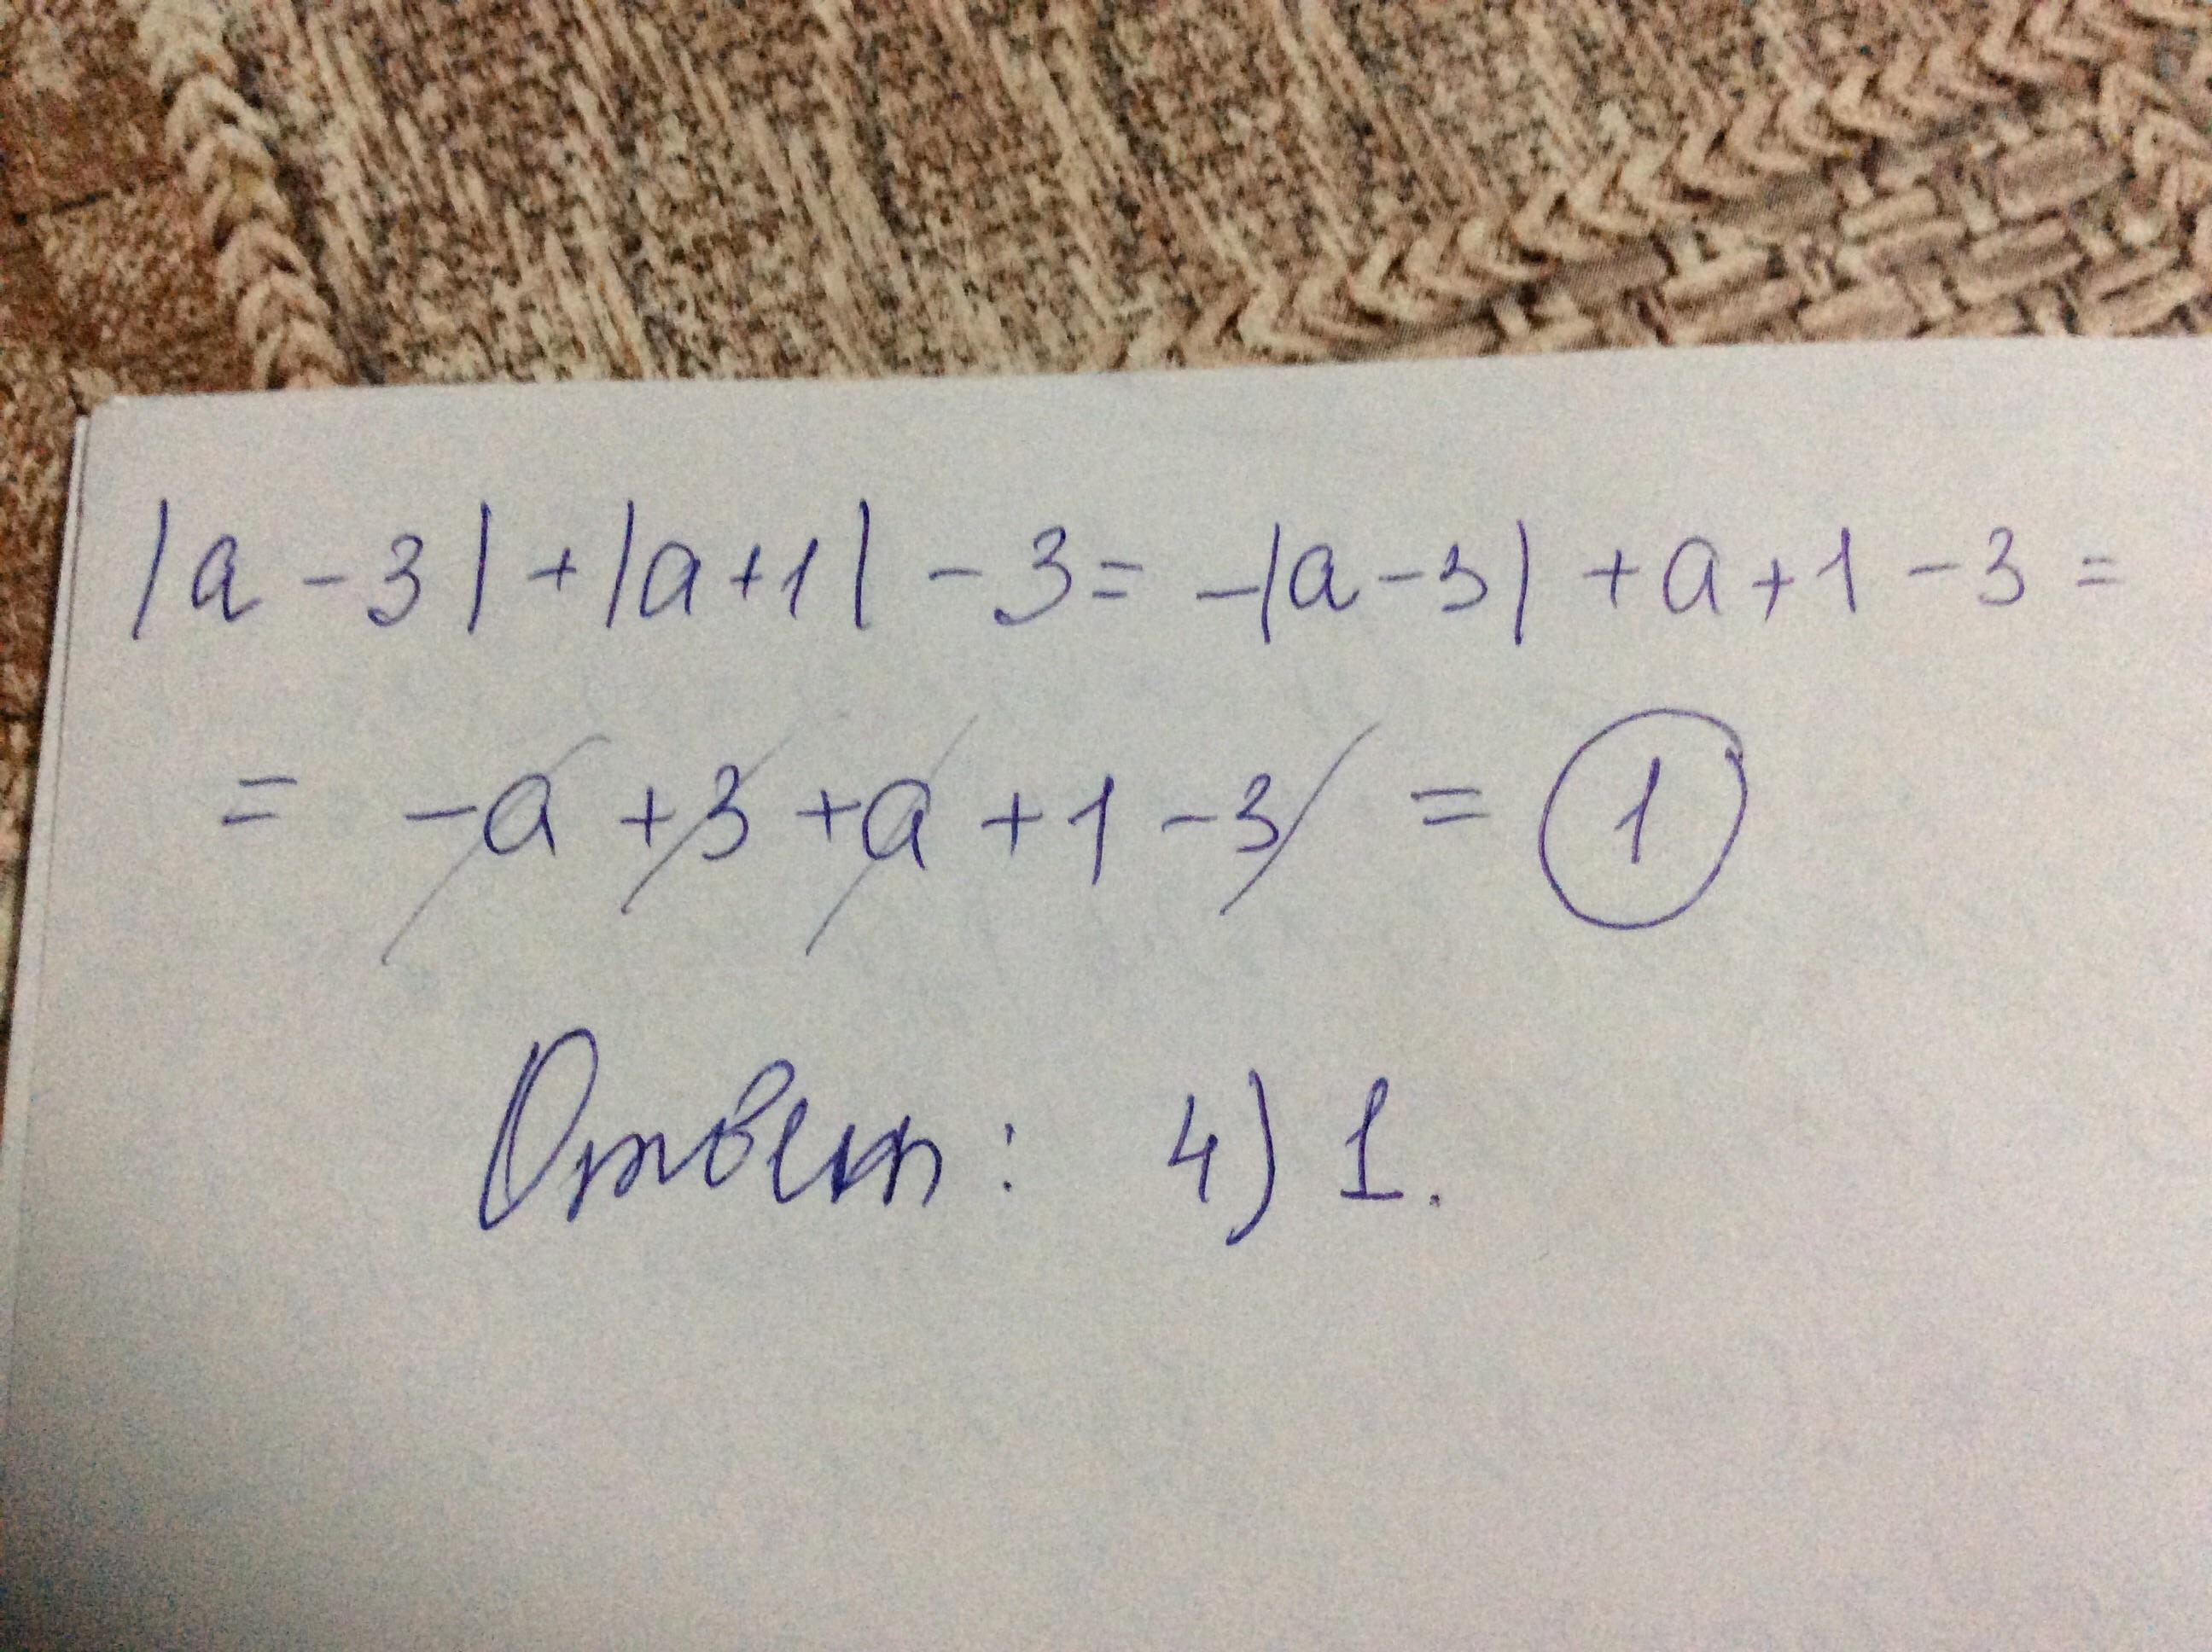 |a - 3| + |a + 1| - 3 = -|a - 3| + a + 1 - 3 =
= -a + 3 + a + 1 - 3 = 1
Ответ: 4) 1.